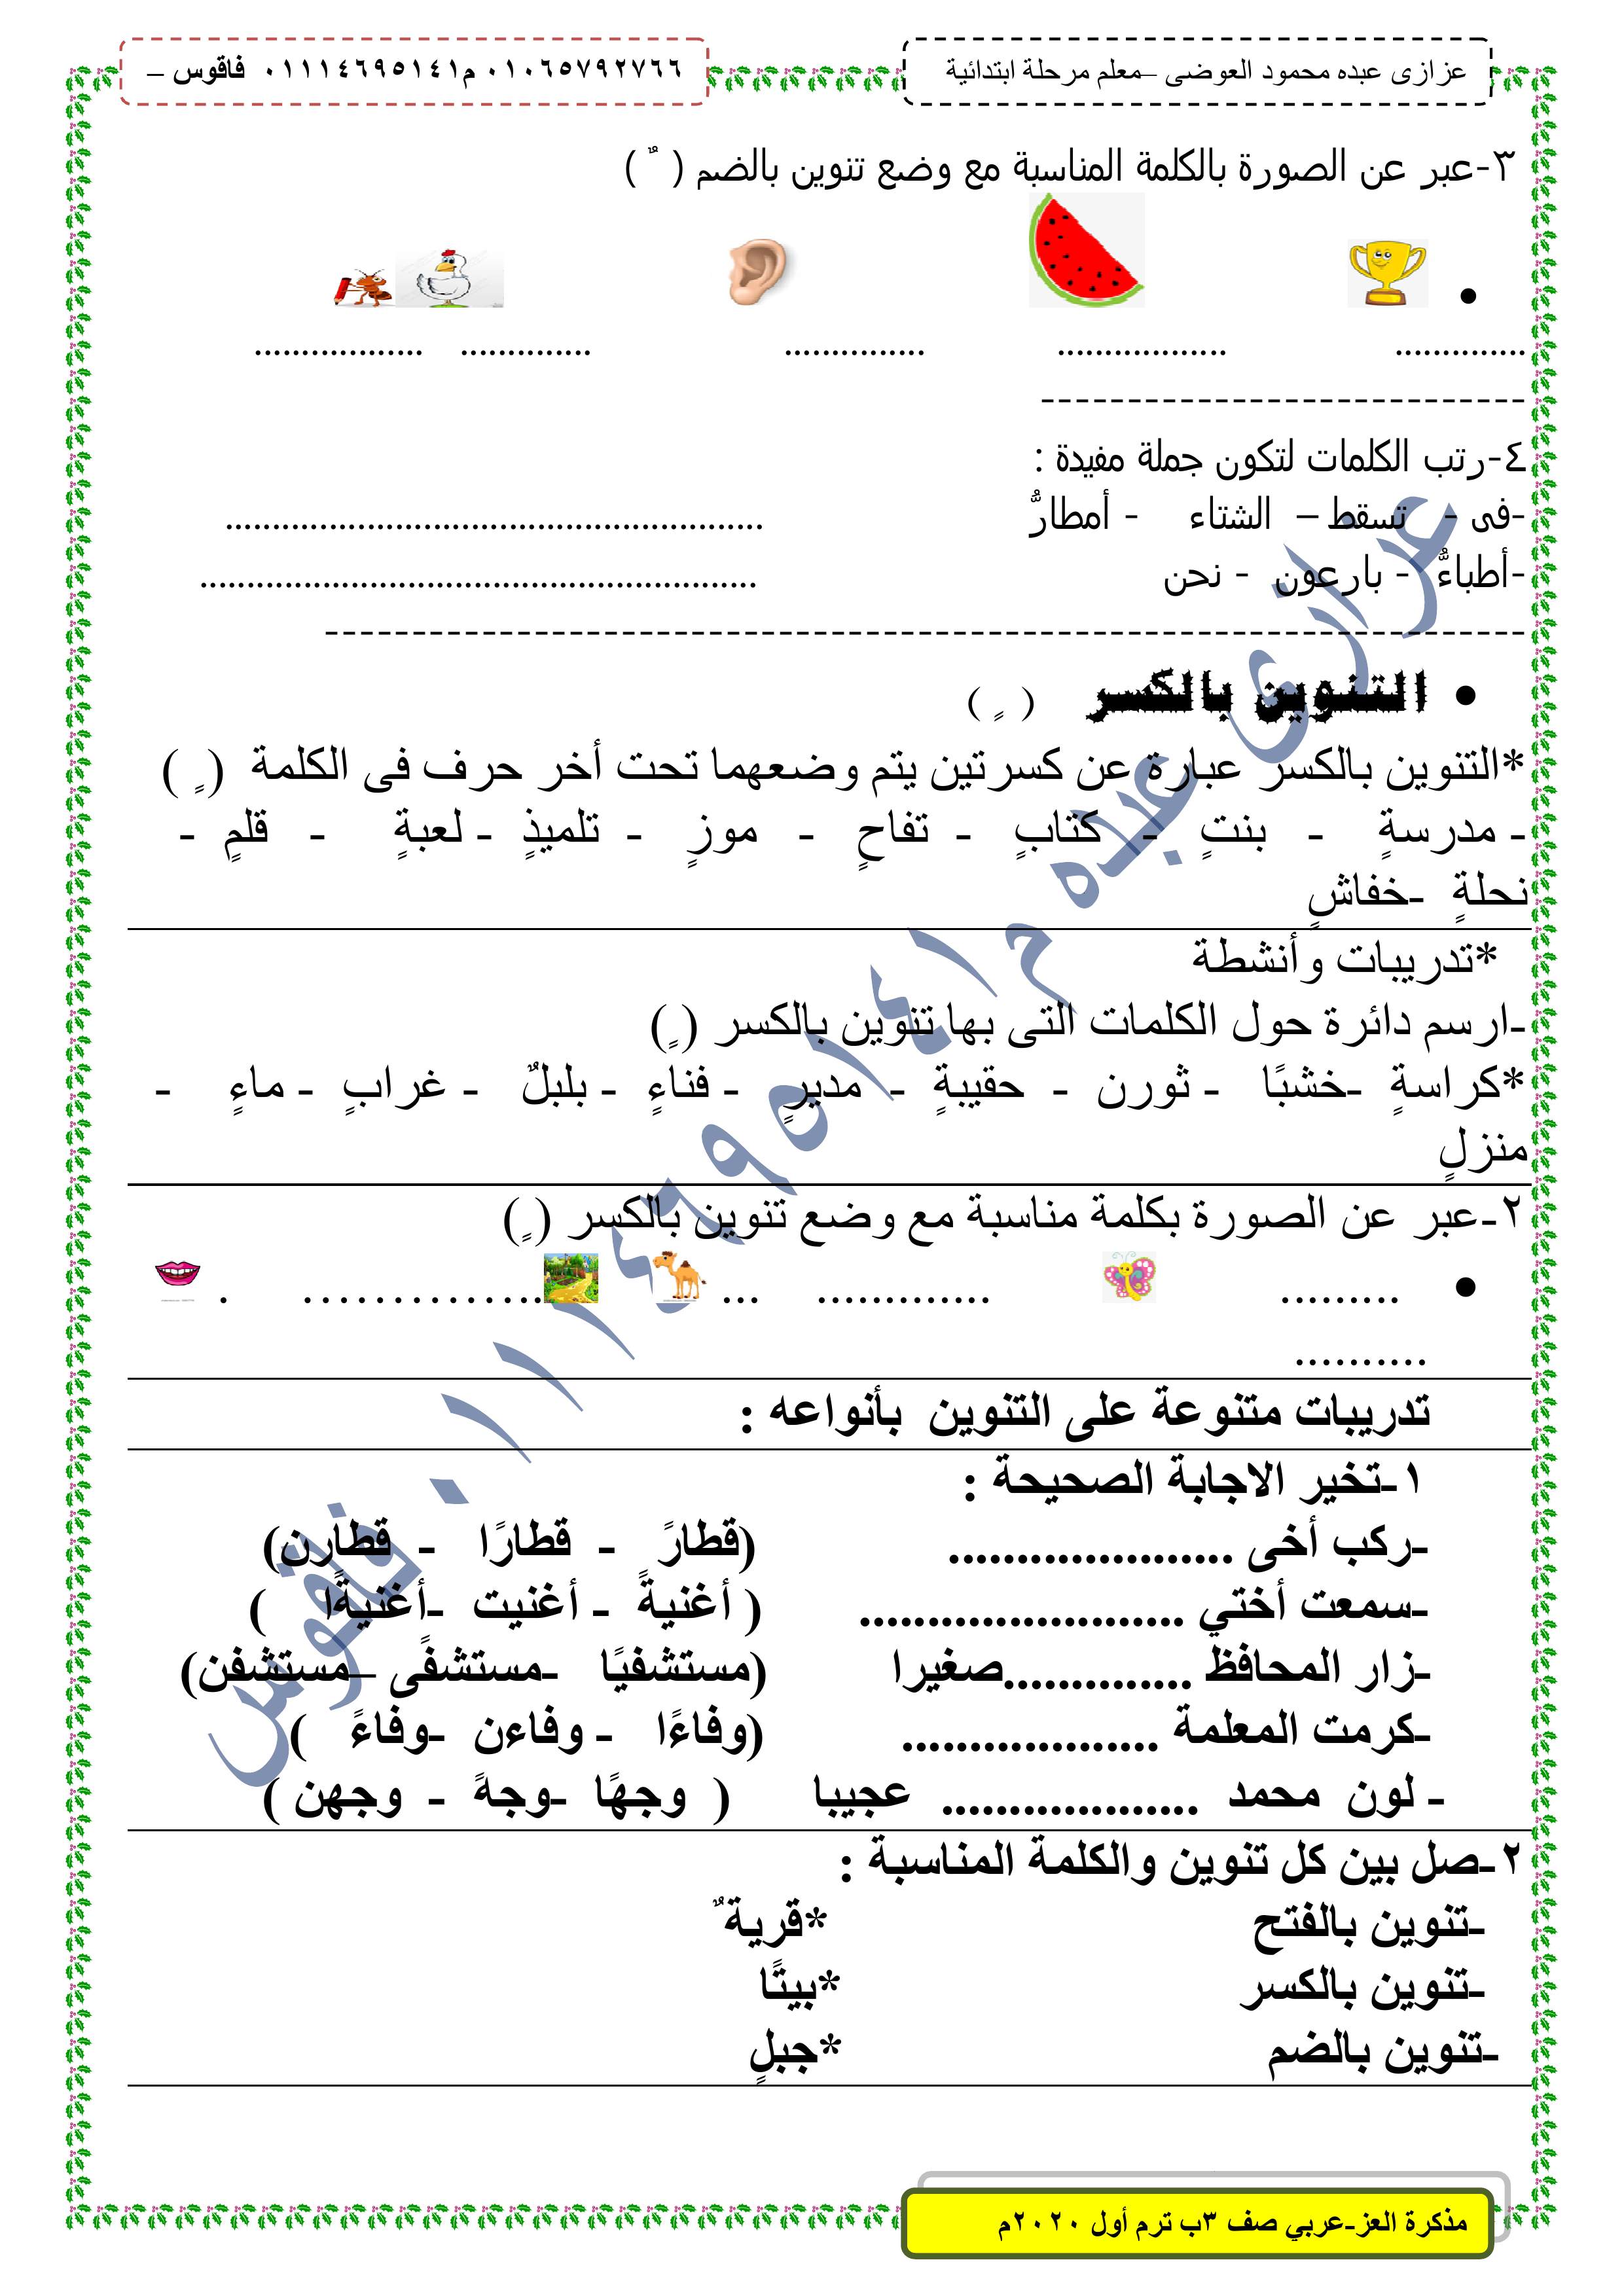 عزازى عبده محمود العوضى –معلم مرحلة ابتدائية
٠١٠٦٥٧٩٢٧٦٦ م٠١١١٤٦٩٥١٤١ فاقوس –
٣-عبر عن الصورة بالكلمة المناسبة مع وضع تنوين بالضم ( ٌ )
.............. .................. ............... .............. ..................
----------------------------
٤-رتب الكلمات لتكون جملة مفيدة :
-فى - تسقط – الشتاء - أمطارٌ .........................................................
-أطباءٌ - بارعون - نحن ...........................................................
----------------------------------------------------------------------
• التنوين بالكسر ( ٍ )
*التنوين بالكسر عبارة عن كسرتين يتم وضعهما تحت أخر حرف فى الكلمة ( ٍ )
- مدرسةٍ - بنتٍ - كتابٍ - تفاحٍ - موزٍ - تلميذٍ - لعبةٍ - قلمٍ -
نحلةٍ -خفاشٍ
*تدريبات وأنشطة
-ارسم دائرة حول الكلمات التى بها تنوين بالكسر ( ٍ)
*كراسةٍ -خشبًا - ثورن - حقيبةٍ - مديرٍ - فناءٍ - بلبلٌ - غرابٍ - ماءٍ -
منزلٍ
٢-عبر عن الصورة بكلمة مناسبة مع وضع تنوين بالكسر ( ٍ)
• ......... ............. ... ............... .
..........
تدريبات متنوعة على التنوين بأنواعه :
١-تخير الاجابة الصحيحة :
-ركب أخى ..................... (قطارً - قطارًا - قطارن)
-سمعت أختي ........................ ( أغنيةً - أغنيت -أغنيةًا )
-زار المحافظ ..............صغيرا (مستشفيًا -مستشفًى –مستشفن)
-كرمت المعلمة ................... (وفاءًا - وفاءن -وفاءً )
- لون محمد ................... عجيبا ( وجهًا -وجهً - وجهن )
٢-صل بين كل تنوين والكلمة المناسبة :
-تنوين بالفتح *قرية ٌ
-تنوين بالكسر *بيتًا
-تنوين بالضم *جبلٍ
مذكرة العز-عربي صف ٣ب ترم أول ٢٠٢٠م
عزازى عبده م ٠١١١٤٦٩٥١٤١ فاقوس